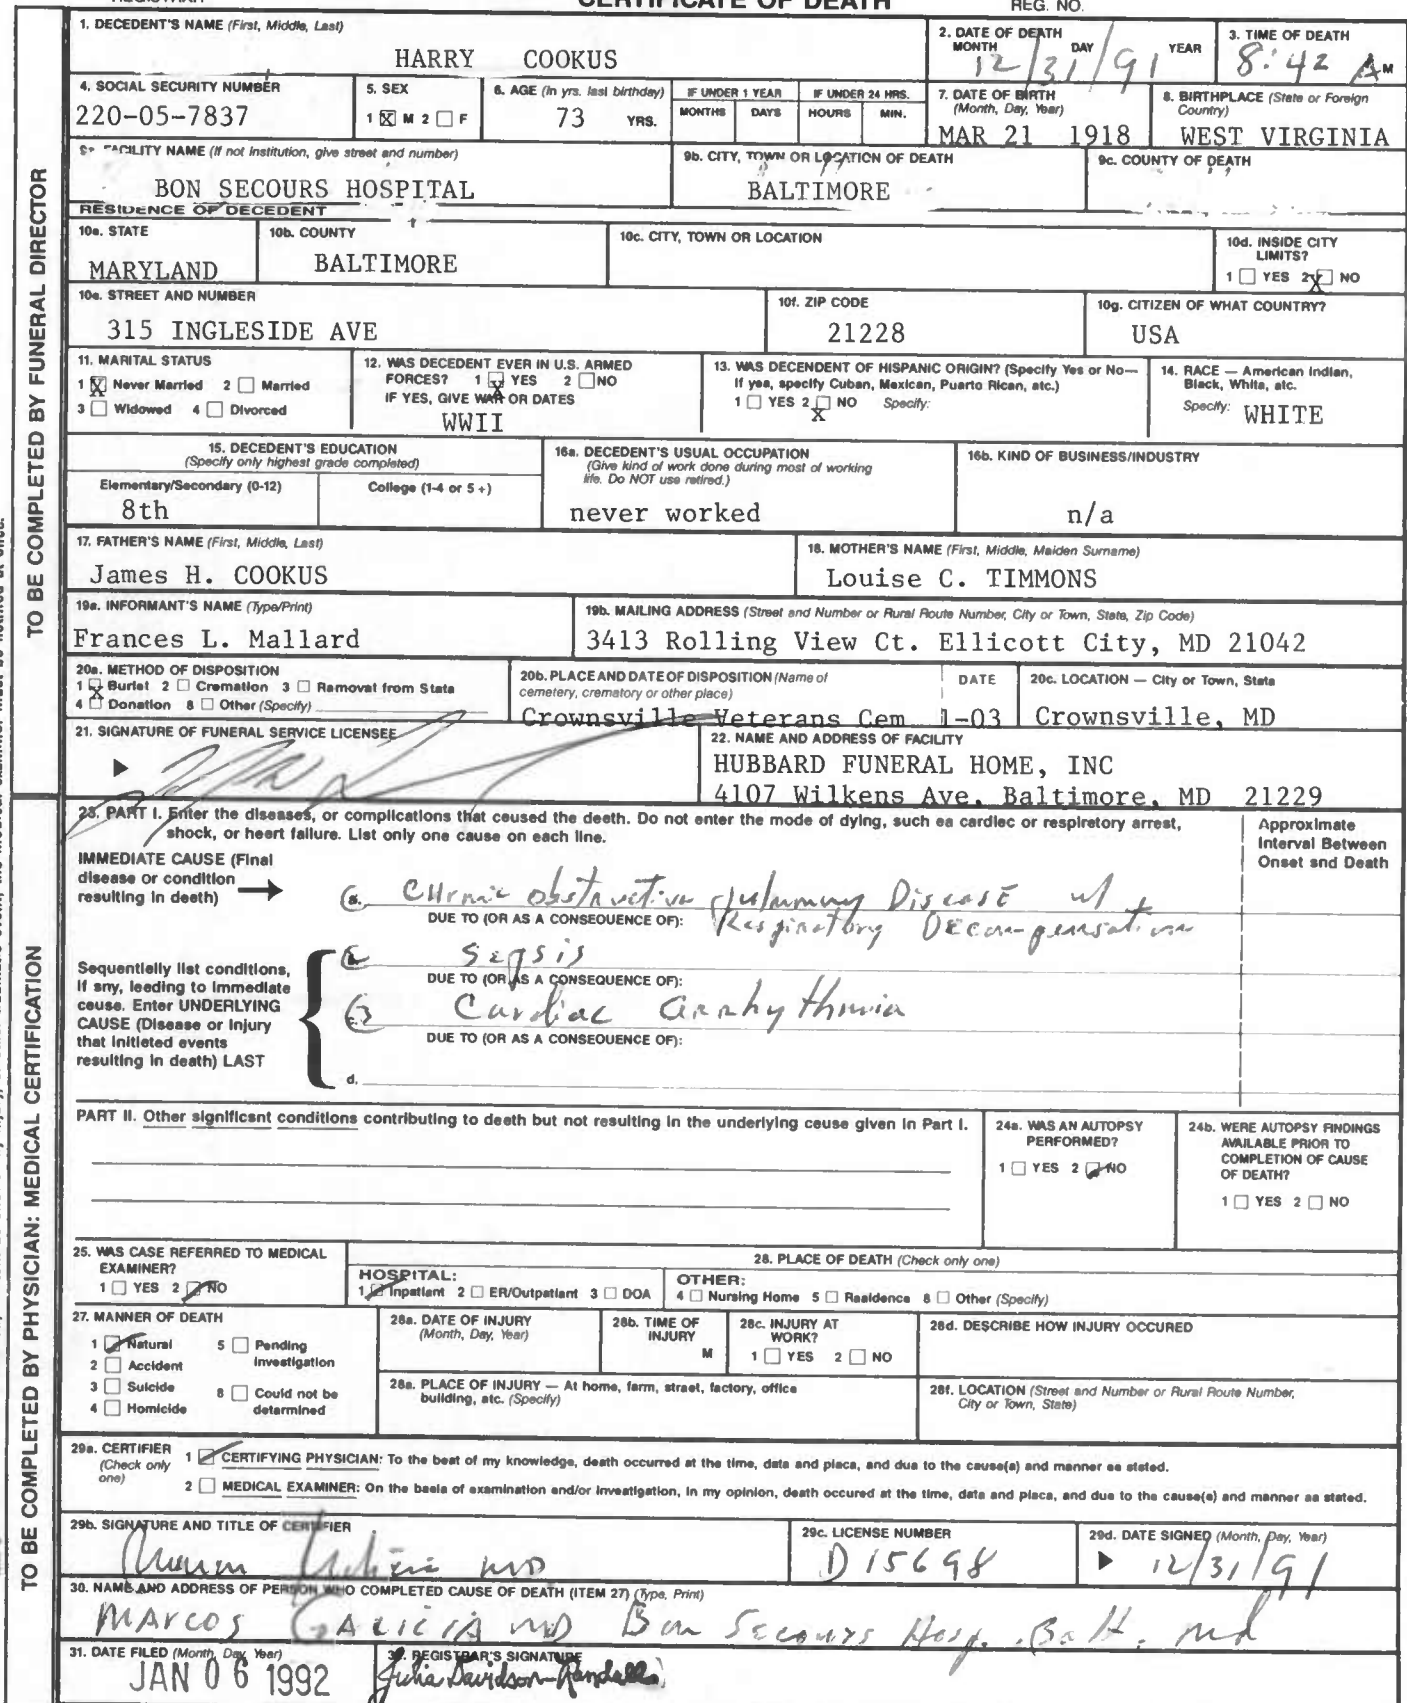 CERTIFICATE OF DEATH
REG. NO.
1. DECEDENT'S NAME (First, Middle, Last)
HARRY COOKUS
2. DATE OF DEATH
MONTH DAY YEAR
12/31/91
3. TIME OF DEATH
8:42 A M
4. SOCIAL SECURITY NUMBER
220-05-7837
5. SEX
1 X M 2 F
6. AGE (In yrs. last birthday)
73 YRS.
IF UNDER 1 YEAR
MONTHS DAYS
IF UNDER 24 HRS.
HOURS MIN.
7. DATE OF BIRTH
(Month, Day, Year)
MAR 21 1918
8. BIRTHPLACE (State or Foreign
Country)
WEST VIRGINIA
FACILITY NAME (If not institution, give street and number)
BON SECOURS HOSPITAL
9b. CITY, TOWN OR LOCATION OF DEATH
BALTIMORE
9c. COUNTY OF DEATH
RESIDENCE OF DECEDENT
10a. STATE
MARYLAND
10b. COUNTY
BALTIMORE
10c. CITY, TOWN OR LOCATION
10d. INSIDE CITY
LIMITS?
1 YES 2 X NO
10e. STREET AND NUMBER
315 INGLESIDE AVE
10f. ZIP CODE
21228
10g. CITIZEN OF WHAT COUNTRY?
USA
11. MARITAL STATUS
1 X Never Married 2 Married
3 Widowed 4 Divorced
12. WAS DECEDENT EVER IN U.S. ARMED
FORCES? 1 X YES 2 NO
IF YES, GIVE WAR OR DATES
WWII
13. WAS DECENDENT OF HISPANIC ORIGIN? (Specify Yes or No—
If yes, specify Cuban, Mexican, Puerto Rican, etc.)
1 YES 2 X NO Specify:
14. RACE — American Indian,
Black, White, etc.
Specify: WHITE
15. DECEDENT'S EDUCATION
(Specify only highest grade completed)
Elementary/Secondary (0-12)
8th
College (1-4 or 5+)
16a. DECEDENT'S USUAL OCCUPATION
(Give kind of work done during most of working
life. Do NOT use retired.)
never worked
16b. KIND OF BUSINESS/INDUSTRY
n/a
17. FATHER'S NAME (First, Middle, Last)
James H. COOKUS
18. MOTHER'S NAME (First, Middle, Maiden Surname)
Louise C. TIMMONS
19a. INFORMANT'S NAME (Type/Print)
Frances L. Mallard
19b. MAILING ADDRESS (Street and Number or Rural Route Number, City or Town, State, Zip Code)
3413 Rolling View Ct. Ellicott City, MD 21042
20a. METHOD OF DISPOSITION
1 X Burial 2 Cremation 3 Removal from State
4 Donation 8 Other (Specify)
20b. PLACE AND DATE OF DISPOSITION (Name of
cemetery, crematory or other place)
DATE
Crownsville Veterans Cem 1-03
20c. LOCATION — City or Town, State
Crownsville, MD
21. SIGNATURE OF FUNERAL SERVICE LICENSEE
22. NAME AND ADDRESS OF FACILITY
HUBBARD FUNERAL HOME, INC
4107 Wilkens Ave. Baltimore, MD 21229
TO BE COMPLETED BY FUNERAL DIRECTOR
23. PART I. Enter the diseases, or complications that caused the death. Do not enter the mode of dying, such as cardiac or respiratory arrest,
shock, or heart failure. List only one cause on each line.
Approximate
Interval Between
Onset and Death
IMMEDIATE CAUSE (Final
disease or condition
resulting in death)
a. Chronic obstructive pulmonary Disease w/
DUE TO (OR AS A CONSEQUENCE OF): Respiratory Decompensation
Sequentially list conditions,
if any, leading to immediate
cause. Enter UNDERLYING
CAUSE (Disease or injury
that initiated events
resulting in death) LAST
b. Sepsis
DUE TO (OR AS A CONSEQUENCE OF):
c. Cardiac arrhythmia
DUE TO (OR AS A CONSEQUENCE OF):
d.
PART II. Other significant conditions contributing to death but not resulting in the underlying cause given in Part I.
24a. WAS AN AUTOPSY
PERFORMED?
1 YES 2 NO
24b. WERE AUTOPSY FINDINGS
AVAILABLE PRIOR TO
COMPLETION OF CAUSE
OF DEATH?
1 YES 2 NO
25. WAS CASE REFERRED TO MEDICAL
EXAMINER?
1 YES 2 NO
26. PLACE OF DEATH (Check only one)
HOSPITAL:
1 Inpatient 2 ER/Outpatient 3 DOA
OTHER:
4 Nursing Home 5 Residence 8 Other (Specify)
27. MANNER OF DEATH
1 Natural 5 Pending
2 Accident Investigation
3 Suicide 8 Could not be
4 Homicide determined
28a. DATE OF INJURY
(Month, Day, Year)
28b. TIME OF
INJURY
M
28c. INJURY AT
WORK?
1 YES 2 NO
28d. DESCRIBE HOW INJURY OCCURED
28e. PLACE OF INJURY — At home, farm, street, factory, office
building, etc. (Specify)
28f. LOCATION (Street and Number or Rural Route Number,
City or Town, State)
29a. CERTIFIER
(Check only
one)
1 CERTIFYING PHYSICIAN: To the best of my knowledge, death occurred at the time, date and place, and due to the cause(s) and manner as stated.
2 MEDICAL EXAMINER: On the basis of examination and/or investigation, in my opinion, death occured at the time, date and place, and due to the cause(s) and manner as stated.
29b. SIGNATURE AND TITLE OF CERTIFIER
MD
29c. LICENSE NUMBER
D15698
29d. DATE SIGNED (Month, Day, Year)
12/31/91
30. NAME AND ADDRESS OF PERSON WHO COMPLETED CAUSE OF DEATH (ITEM 27) (Type, Print)
Marcos Galicia MD Bon Secours Hosp. Balt. Md
31. DATE FILED (Month, Day, Year)
JAN 06 1992
32. REGISTRAR'S SIGNATURE
Julia Davidson-Randall
TO BE COMPLETED BY PHYSICIAN: MEDICAL CERTIFICATION